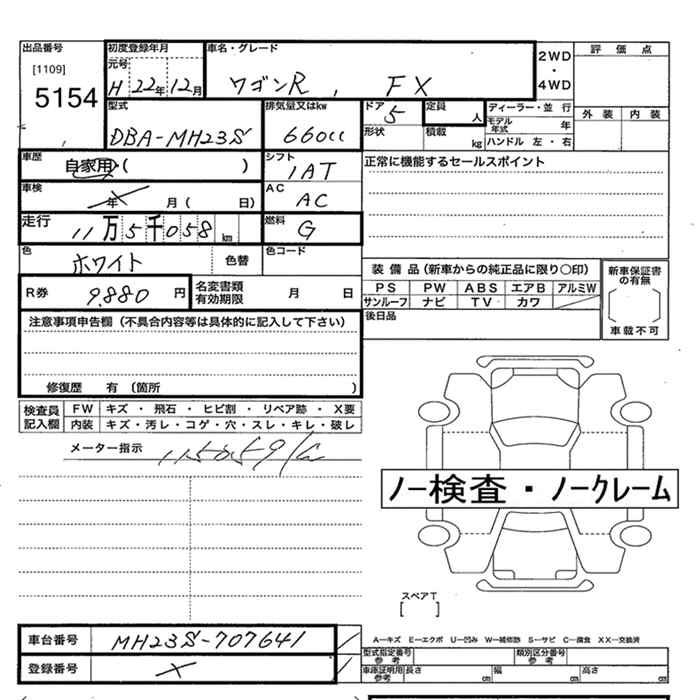 出品番号 初度登録年月 車名・グレード 評価点
[1109] 元号 2WD
5154 H 22年 12月 ワゴンR , FX ・ 4WD 外装 内装
型式 排気量又はkw ドア 定員 ディーラー・並行
DBA-MH23S 660cc 5 人 モデル年式 年
形状 積載 kg ハンドル 左・右
車歴 自家用 ( ) シフト 1AT 正常に機能するセールスポイント
車検 X 年 月 ( 日) AC AC
走行 11万5千058km 燃料 G
色 ホワイト 色替 色コード
装備品(新車からの純正品に限り〇印) 新車保証書の有無
R券 9,880 円 名変書類有効期限 月 日 PS PW ABS エアB アルミW
サンルーフ ナビ TV カワ
注意事項申告欄(不具合内容等は具体的に記入して下さい) 後日品 車載不可
修復歴 有 (箇所 )
検査員記入欄 FW キズ ・ 飛石 ・ ヒビ割 ・ リペア跡 ・ X要
内装 キズ・汚レ・コゲ・穴・スレ・キレ・破レ
メーター指示 115059
ノー検査・ノークレーム
スペアT
[ ]
車台番号 MH23S-707641 A―キズ E―エクボ U―凹み W―補修跡 S―サビ C―腐食 XX―交換済
型式指定番号 参考 類別区分番号 参考
登録番号 X 車庫証明用 参考 長さ cm 幅 cm 高さ cm